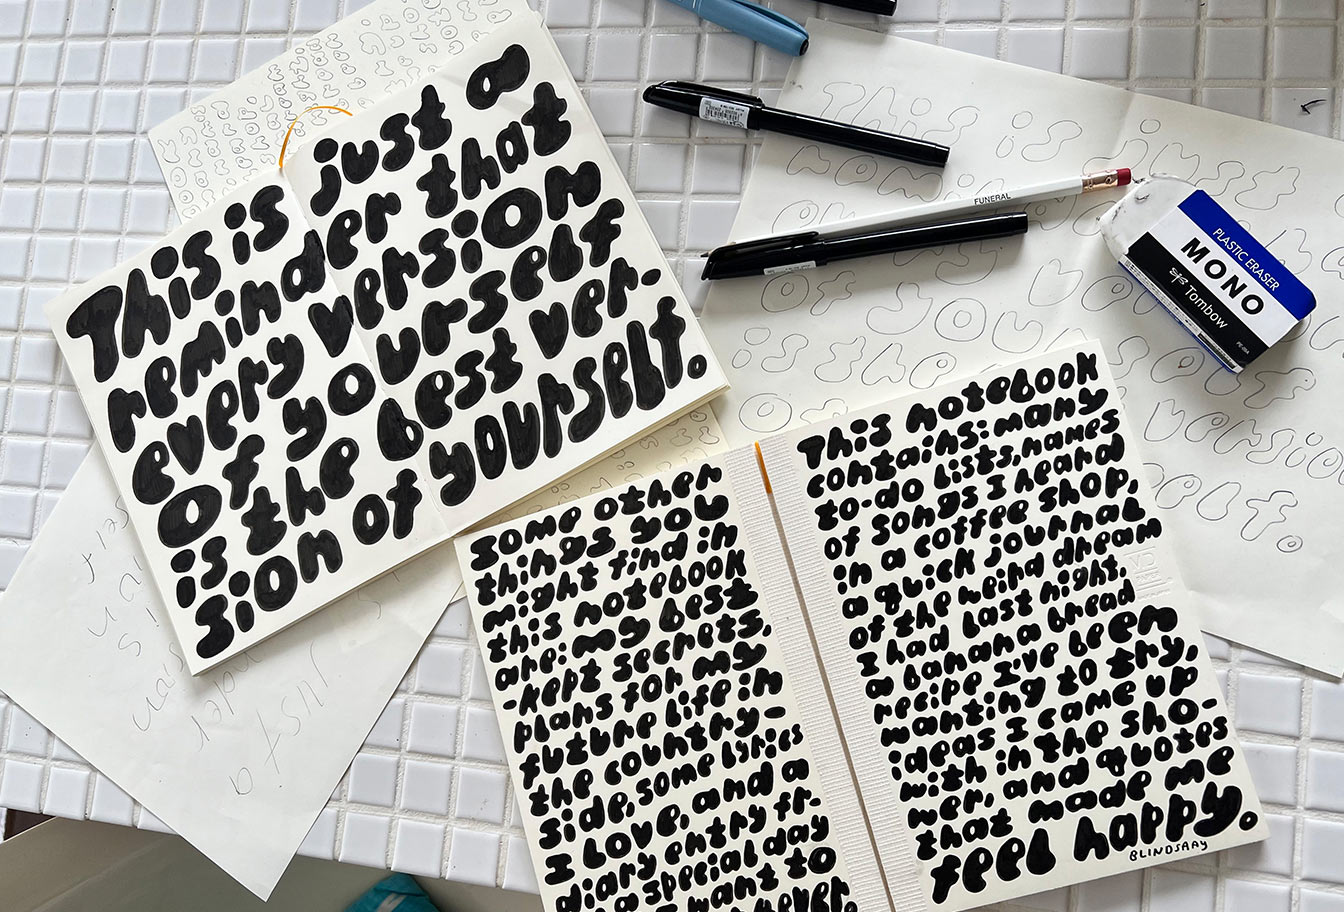 This is just a
reminder that
every version
of yourself
is the best ver-
sion of yourself.
FUNERAL
PLASTIC ERASER
MONO
Tombow
This is
of you
This notebook
contains: many
to-do lists, names
of songs I heard
in a coffee shop,
a quick journal
of the weird dream
I had last night,
a banana bread
recipe I've been
wanting to try,
ideas I came up
with in the sho-
wer, and quotes
that made me
feel happy.
BLINDSAAY
some other
things you
might find in
this notebook
are: my best
-kept secrets,
plans for my
future life in
the country-
side, some lyrics
I love, and a
diary entry fr-
a special day
want to
just
a